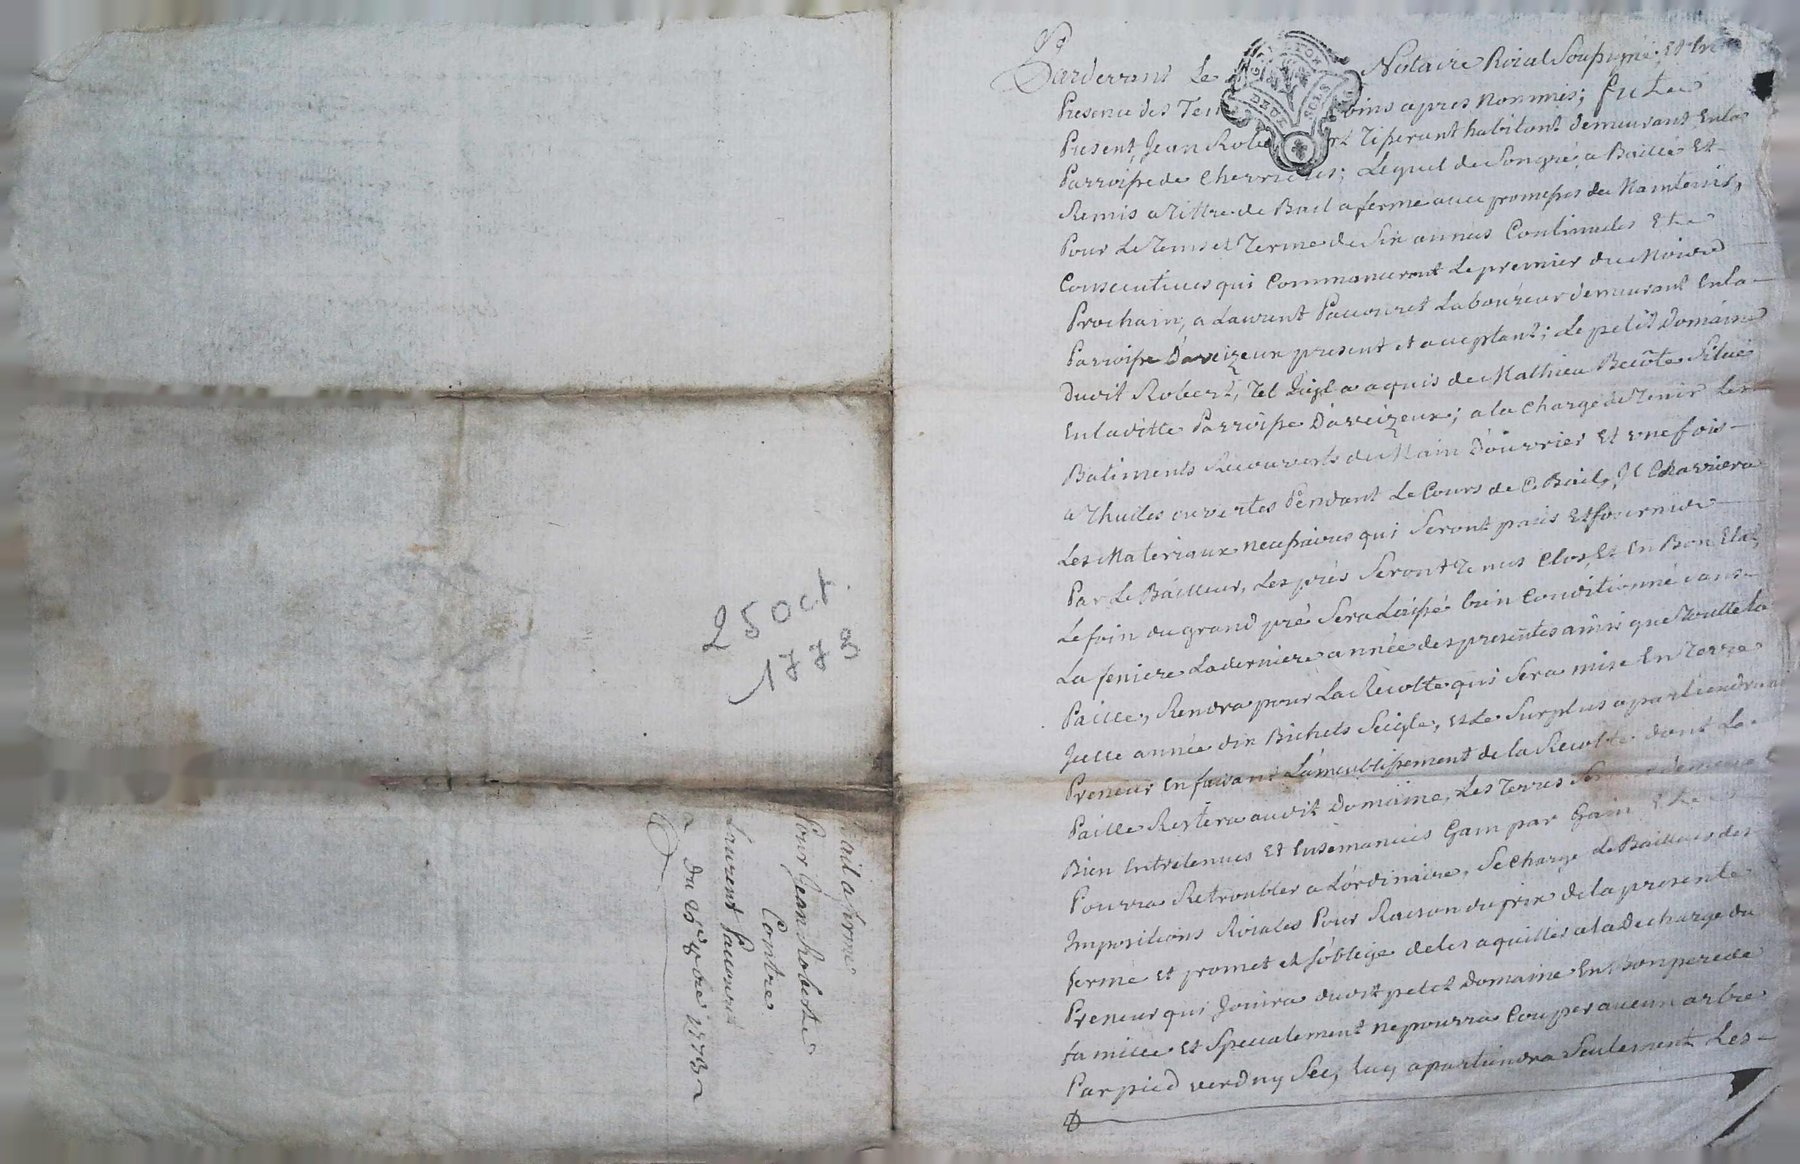 25 Oct.
1773
Bail a ferme
Pour Jean Roberte
Contre
Laurent Pacouret
Du 25e 8bre 1773
GENERAL LYON
DEUX SOLS
Pardevant Le Notaire Roial Soussigné; Et En
Presence des Temoins apres Nommés; fut
Present Jean Robert Tisserant habitant demeurant Enla
Parroisse de Cherrieres; Lequel de Son gré, a Baillé Et
Remis a Tittre de Bail a ferme avec promesses de Maintenir,
Pour Le Tems et Terme de Six années Continuelles Et
Consecutives qui Commanceront Le premier du Mois
Prochain, a Laurent Pacouret Laboureur demeurant Enla
Parroisse Daveizeux present et acceptant; Le petit Domaine
Dudit Robert, Tel quil a aquis de Mathieu Situé
Enladitte Parroisse Daveizeux; a la Charge de Tenir Les
Batiments Recouverts de Main D'ouvrier Et une fois
a Thuiles ouvertes Pendant Le Cours de Ce Bail, Il Charriera
Les Materiaux necessaires qui Seront paiés Et fournis
Par Le Bailleur, Les prés Seront Tenus Clos Et En Bon Etat,
Le foin du grand pré Sera Laissé bien Conditionné dans
La feniere La derniere année des presentes ainsi que Toutte la
Paille, Rendra pour La Recolte qui Sera mise En Terre
Icelle année dix Bichets Seigle, Et Le Surplus apartiendra au
Preneur En faisant L'ameublissement de la Recolte dont La
Paille Restera audit Domaine, Les Terres Seront
Bien Entretenues Et Ensemancées Gain par Gain Et
Pourra Retroubler a L'ordinaire, Se Charge Le Bailleur des
Impositions Roiales Pour Raison du prix de la presente
ferme Et promet et s'oblige de les aquitter a la Decharge du
Preneur qui Jouira dudit petit Domaine En Bon pere de
famille Et Specialement ne pourra Couper aucun arbre
Par pied verd ny Sec, Luy apartiendra Seulement Les